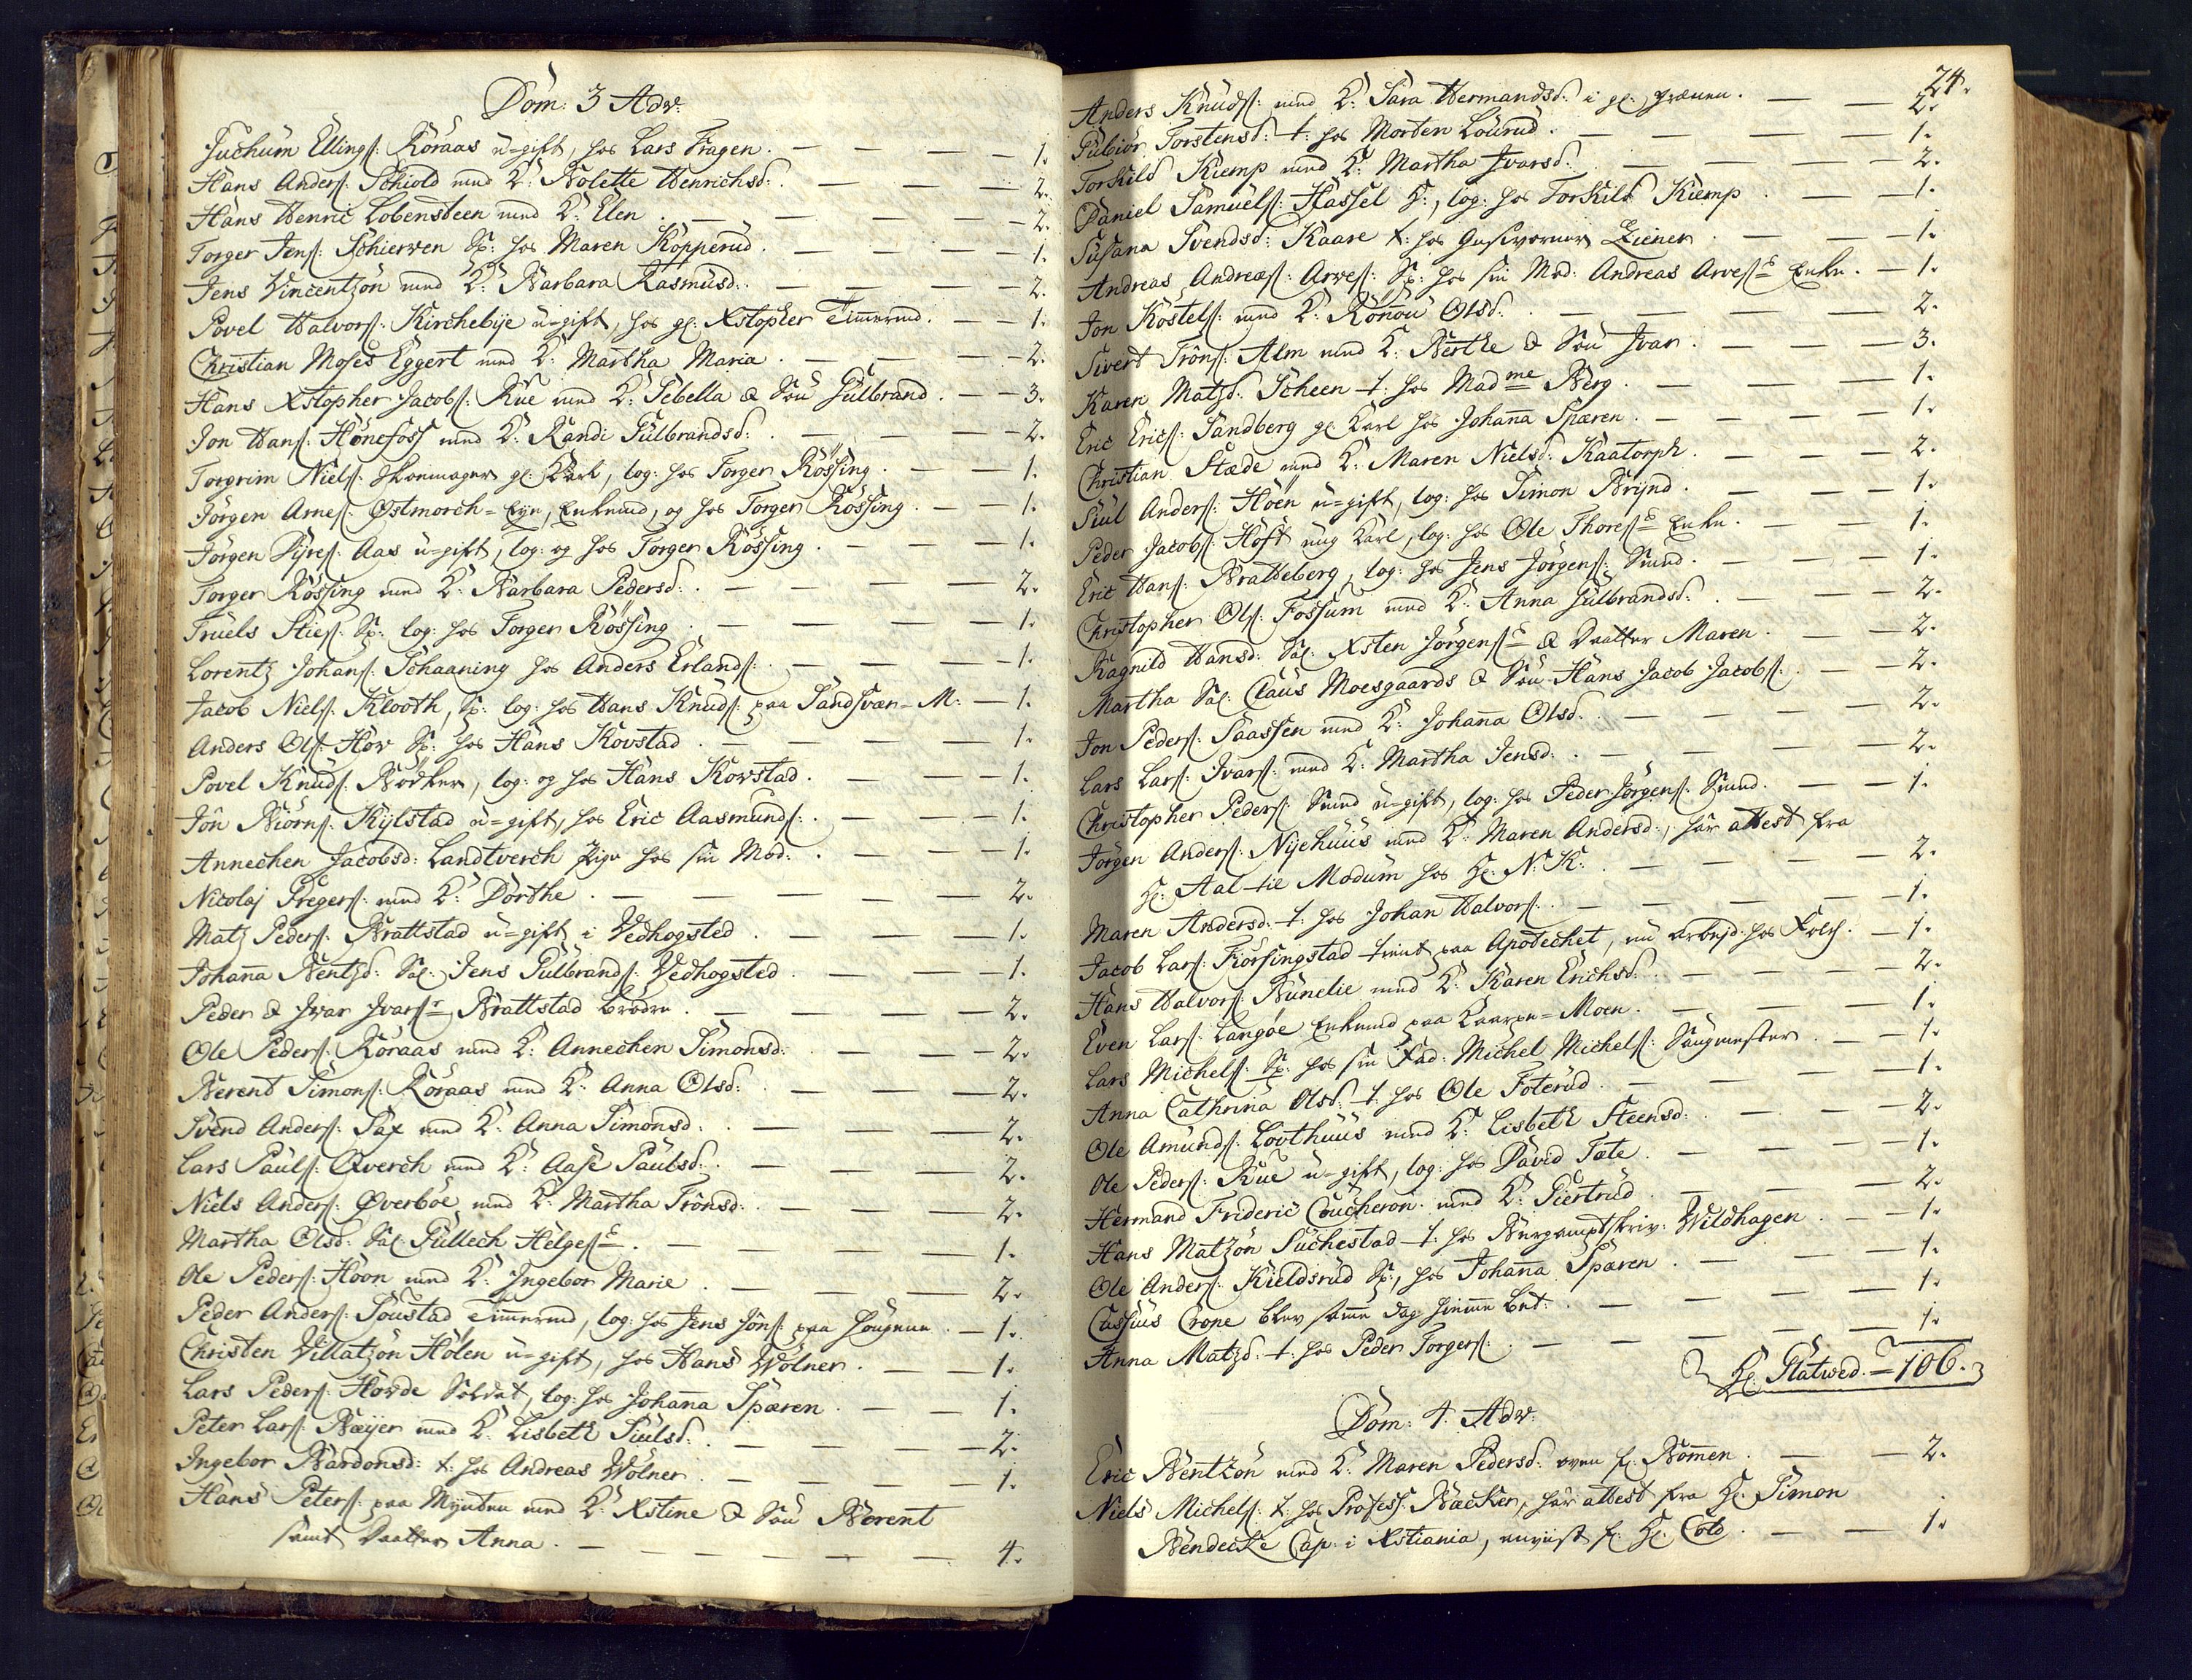 Dom: 3 Adv:
Juchum Ellings: Röraas u-gift, hos Lars Fragen. — 1.
Hans Anders: Schiold med K: Bolette Henrichsd: — 2.
Hans Henric Lobensteen med K: Elen — 2.
Torger Jens: Schierven Sp: hos Maren Kopperud. — 1.
Jens Vincentzön med K: Barbara Rasmusd: — 2.
Povel Halvors: Kirchebije u-gift, hos gl: Xstopher Timermd. — 1.
Christian Moses Eggert med K: Martha Maria. — 2.
Hans Xstopher Jacobs: Rue med K: Sebella & Sön Gulbrand. — 3.
Jon Hans: Hönefoss med K: Randi Gulbrandsd: — 2.
Torgrim Niels: Skoemager gl: Karl, log: hos Torger Rössing. — 1.
Jörgen Arnes: Østmorch-Eye, Enkemd, og hos Torger Rössing. — 1.
Jörgen Syres: Aas u-gift, log: og hos Torger Rössing. — 1.
Torger Rössing med K: Barbara Pedersd: — 2.
Truels Sties: Sp: log: hos Torger Rössing. — 1.
Lorentz Johans: Schaaning hos Anders Erlands: — 1.
Jacob Niels: Klooth, Sp: log: hos Hans Knuds: paa Sandsvær-M: — 1.
Anders Ols: Hov Sp: hos Hans Kovstad. — 1.
Povel Knuds: Bödker, log: og hos Hans Kovstad. — 1.
Jön Biörns: Kylstad u-gift, hos Eric Aasmunds: — 1.
Annechen Jacobsd: Landtverch Pige hos sin Mod: — 1.
Nicolaj Gregers: med K: Dorthe. — 2.
Matz Peders: Brattstad u-gift i Vedhogsted. — 1.
Johanna Bentzd: Sal: Jens Gulbrands: Vedhogsted — 1.
Peder & Ivar Ivars: Brattstad brödre. — 2.
Ole Peders: Röraas med K: Annechen Simonsd: — 2.
Berent Simons: Röraas med K: Anna Olsd: — 2.
Svend Anders: Sax med K: Anna Simonsd: — 2.
Lars Pauls: Qverch med K: Aase Paulsd: — 2.
Niels Anders: Øverböe med K: Martha Trönsd: — 2.
Martha Olsd: Sal: Gullech Helges: — 1.
Ole Peders: Hoon med K: Ingebor Marie. — 2.
Peder Anders: Soustad Timermd, log: hos Jens Jöns: paa Hougene. — 1.
Christen Villatzön Hölen u-gift, hos Hans Wölner. — 1.
Lars Peders: Hovde Soldat, log: hos Johanna Sparen. — 1.
Peter Lars: Bæijer med K: Lisbeth Siulsd: — 2.
Ingebor Bardonsd: t: hos Andreas Wölner. — 1.
Hans Peters: paa Mynten med K: Xstine & Sön Berent
samt Daatter Anna. — 4.
24.
Anders Knuds: med K: Sara Hermandsd: i gl: — 2.
Gubiör Torstensd: t: hos Morten Lourud. — 1.
Torkild Kiemp med K: Martha Ivarsd: — 2.
Daniel Samuels: Hassel H:, log: hos Torkild Kiemp — 1.
Susana Svendsd: Kaare t: hos Ziener — 1.
Andreas Andreas: Arves: Sp: hos sin Mod: Andreas Arves: Enke. — 1.
Jon Kostels: med K: Rönou Olsd: — 2.
Sivert Tröns: Alm med K: Berthe & Sön Ivar. — 3.
Karen Matzd: Scheen t: hos Madme Berg. — 1.
Eric Erics: Sandberg gl: Karl hos Johanna Sparen. — 1.
Christian Stæde med K: Maren Nielsd: Kaatorph. — 2.
Siul Anders: Höen u-gift, log: hos Simon Brynd. — 1.
Peder Jacobs: Höft ung Karl, log: hos Ole Thores: Enke. — 1.
Eric Hans: Bratteberg, log: hos Jens Jörgens: Smed. — 1.
Christopher Ols: Fossum med K: Anna Gulbrandsd: — 2.
Ragnild Hansd: Sal: Xsten Jörgens: & Daatter Maren. — 2.
Martha Sal: Claus Moesgaards & Sön Hans Jacob Jacobs: — 2.
Jon Peders: Saassen med K: Johanna Olsd: — 2.
Lars Lars: Ivars: med K: Martha Jensd: — 2.
Christopher Peders: Smed u-gift, log: hos Peder Jörgens: Smed. — 1.
Jörgen Anders: Nijehuus med K: Maren Andersd:, har attest fra
Hr: Aal til Modum hos Hr: N: K: — 2.
Maren Andersd: t: hos Johan Halvors: — 1.
Jacob Lars: Fiörsingstad tient paa Apotechet, nu arbejd: hos Folch. — 1.
Hans Halvors: Bunelie med K: Karen Erichsd: — 2.
Even Lars: Langöe Enkemd paa Kaarpe-Moen. — 1.
Lars Michels: Sp: hos sin Fad: Michel Michels: Saugmester. — 1.
Anna Cathrina Olsd: t: hos Ole Foterud. — 1.
Ole Amunds: Loothuus med K: Lisbeth Steensd: — 2.
Ole Peders: Rue u-gift, log: hos David Tæte. — 1.
Hermand Frideric Coucheron med K: Giertrud. — 2.
Hans Matzön Suchestad t: hos Bergamptskriv: Wildhagen. — 1.
Ole Anders: Kieldsrud Sp:, hos Johanna Sparen. — 1.
Cassius Crone blev samme Dag hiemme bet: — 1.
Anna Matzd: t: hos Peder Torgers: — 1.
Hr: Statwed. = 106.
Dom: 4. Adv:
Eric Bentzön med K: Maren Pedersd: oven f: Bommen. — 2.
Niels Michels: t: hos Profess: Backer, har attest fra Hr: Simon
Bendecke Cap: i Xstiania, anviist f: Hr: Cold. — 1.